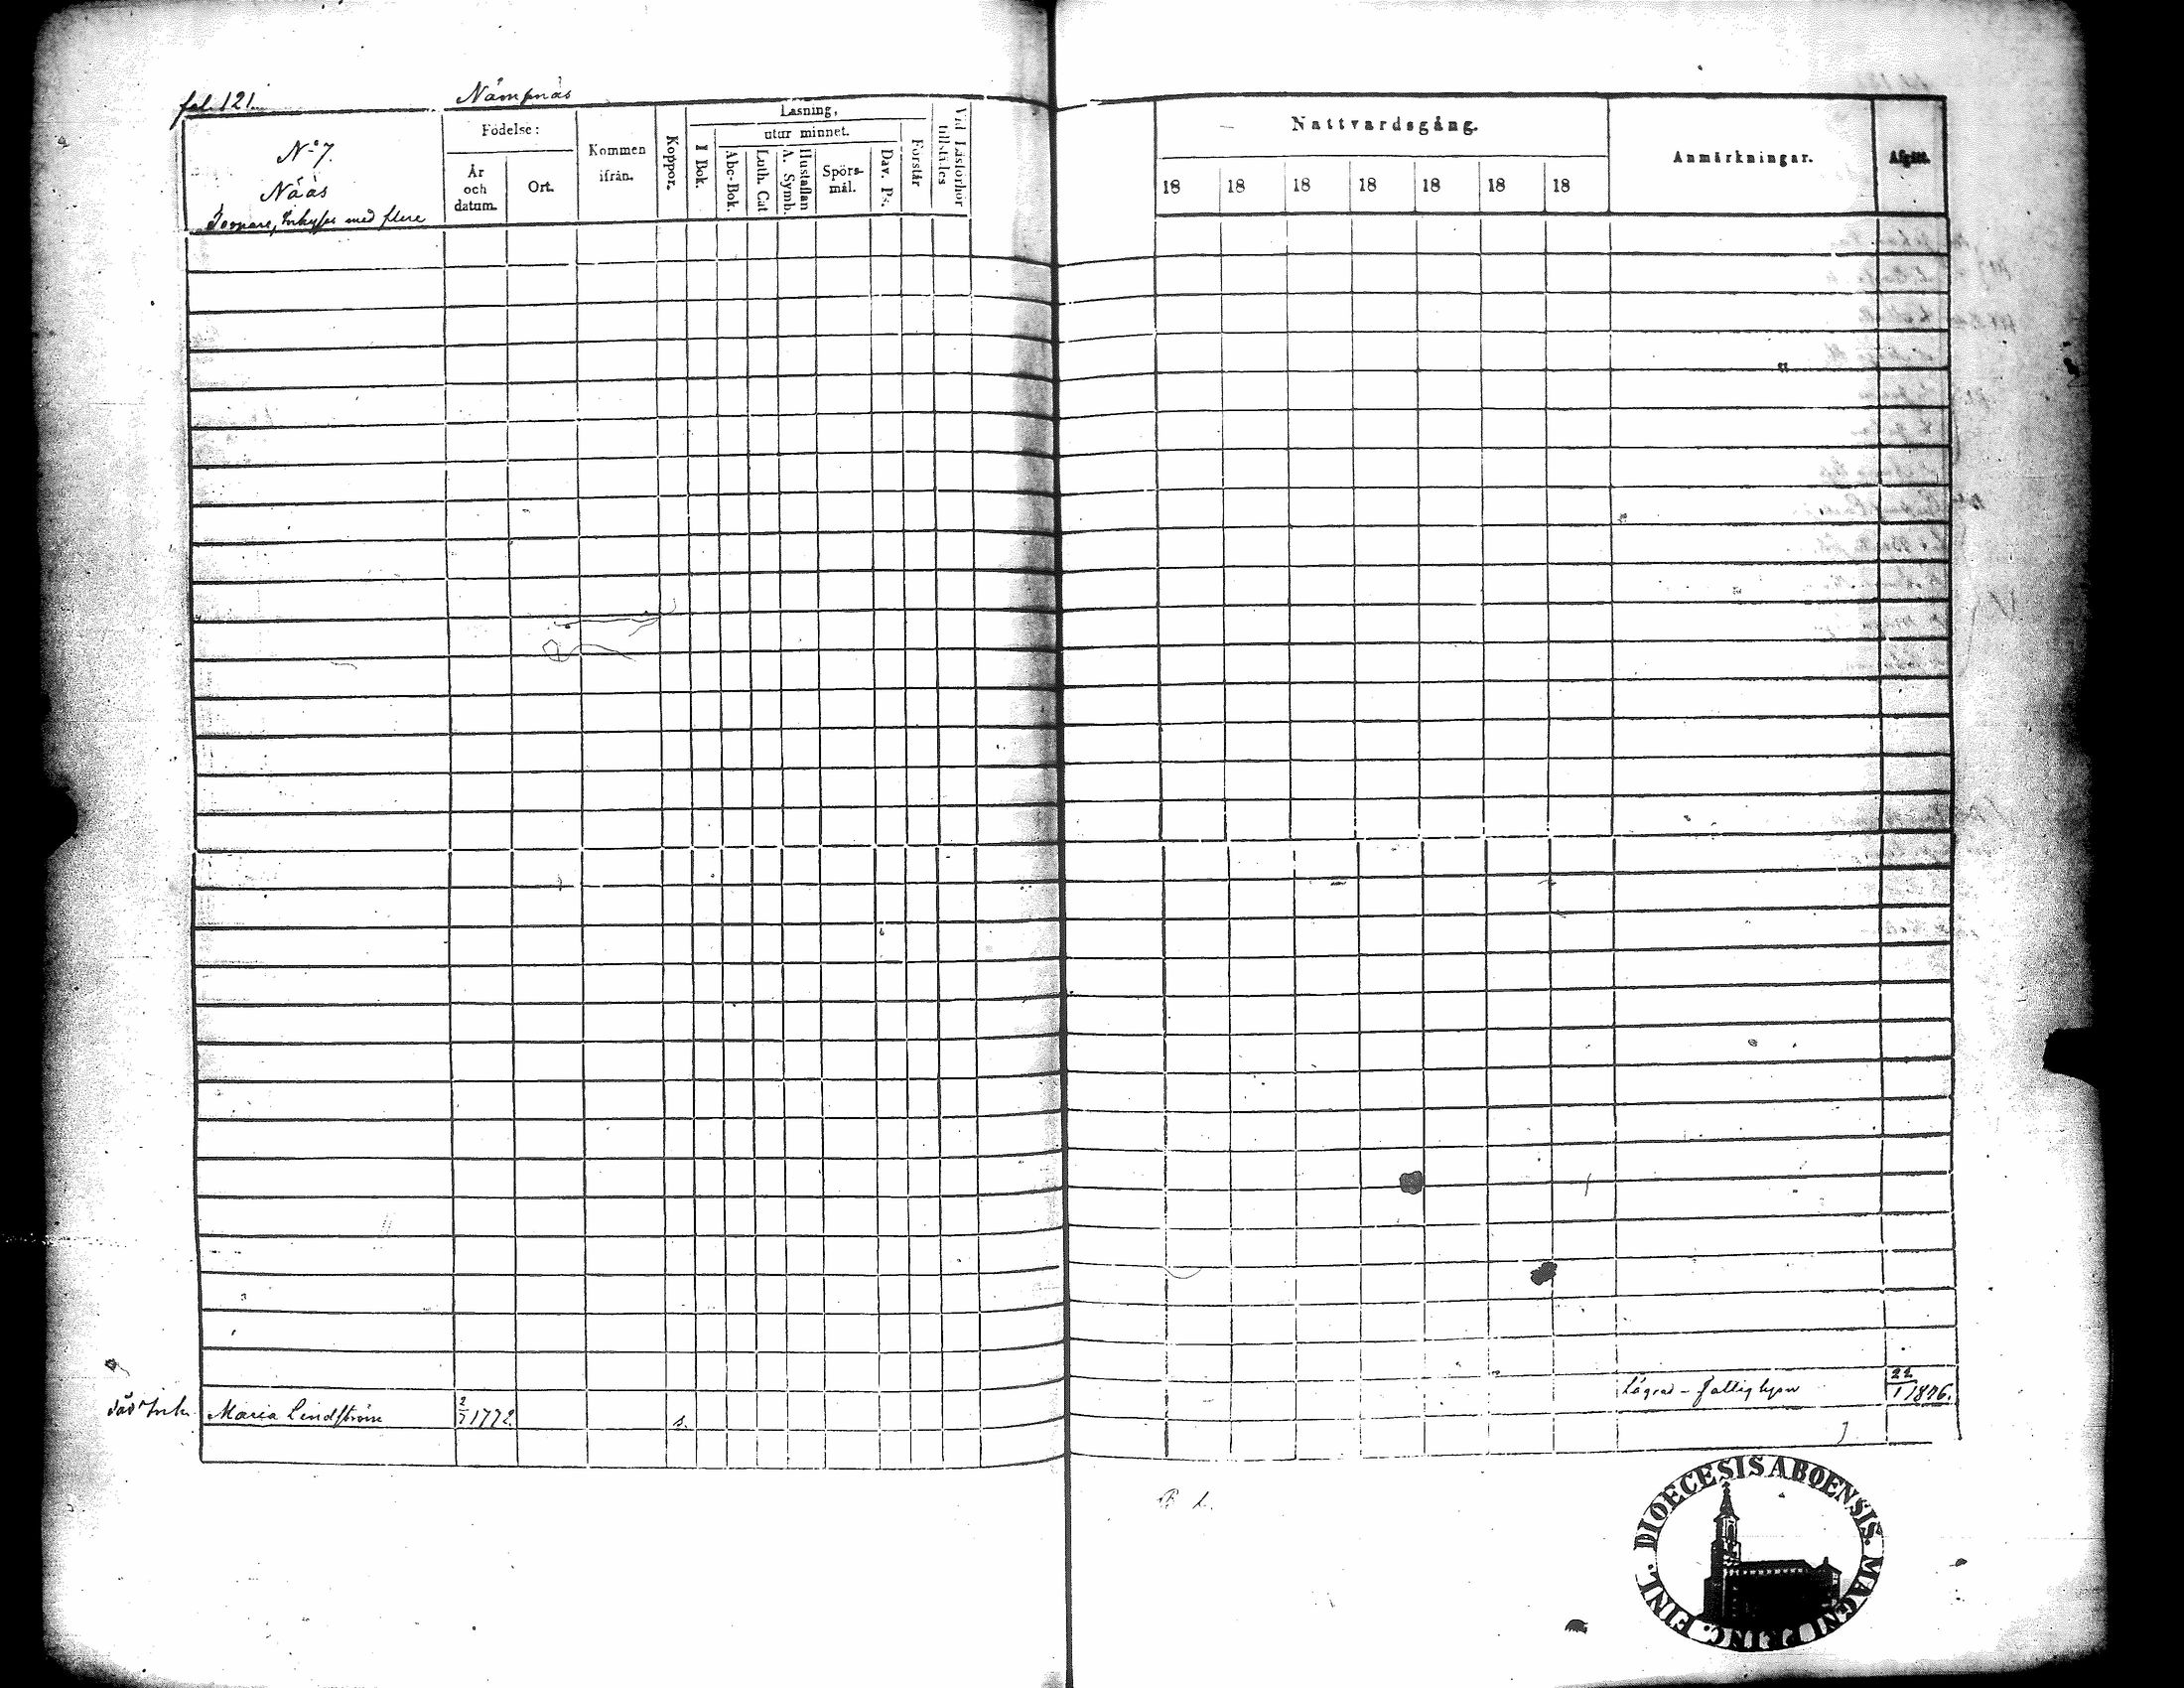 fol. 121. Nämpnäs
N:o 7.
Nääs
Torpare, Inhyses med flere
Födelse:
År och datum.
Ort.
Kommen ifrån.
Koppor.
Läsning,
utur minnet.
I Bok.
Abc-Bok.
Luth. Cat
Hustaflan A. Symb.
Spörs-mål.
Dav. Ps.
Förstår
Vid Läsförhör tillstädes
Nattvardsgång.
18 18 18 18 18 18 18
Anmärkningar.
Afgått.
Maria Lindström 2/7 1772. s. fattighjon 22/1 1876.
DIOECESIS ABOENSIS. MAGNI PRINC. FINL.